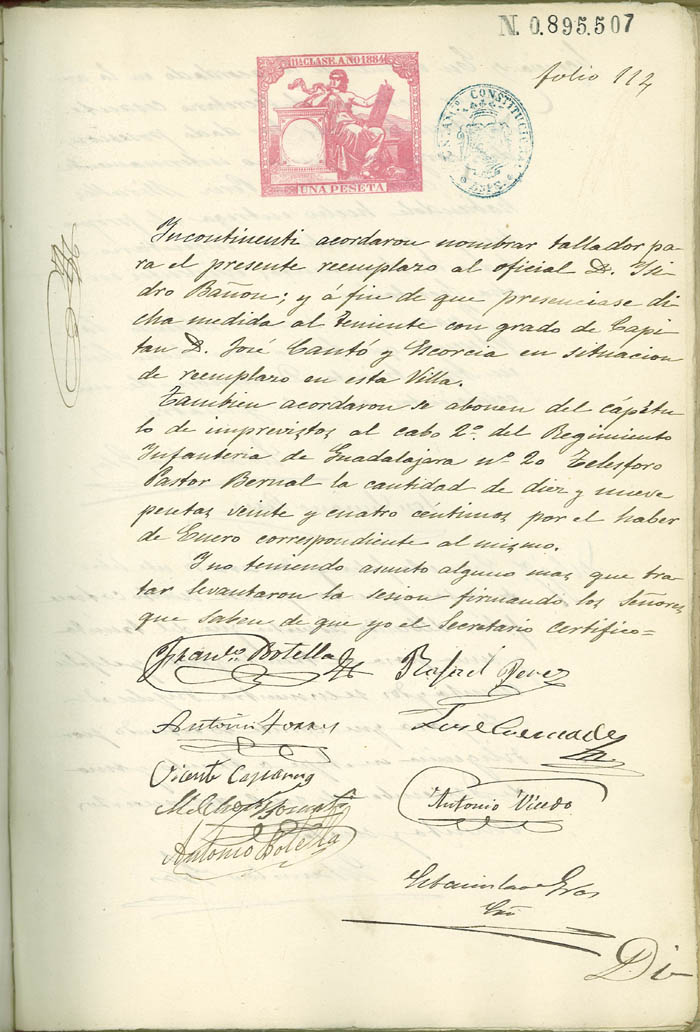 N. 0.895.507
folio 114
11ª CLASE. AÑO 1884
UNA PESETA
CONSTITUCIONAL
Incontinenti acordaron nombrar tallador pa
ra el presente reemplazo al oficial D. Isi
dro Bañon; y á fin de que presenciase di
cha medida al teniente con grado de Capi
tan D. José Cantó y Escorcia en situacion
de reemplazo en esta Villa.
Tambien acordaron se abonen del cápitu
lo de imprevistos al cabo 2º. del Regimiento
Infanteria de Guadalajara nº. 20 Telesforo
Pastor Bernal la cantidad de diez y nueve
pesetas veinte y cuatro céntimos por el haber
de Enero correspondiente al mismo.
Y no teniendo asunto alguno mas que tra
tar levantaron la sesion firmando los Señores
que saben de que yo el Secretario certifico=
Botella
Rafael Perez
Antonio Torres
Vicente
Antonio Vicedo
Antonio Botella
Srio
Di